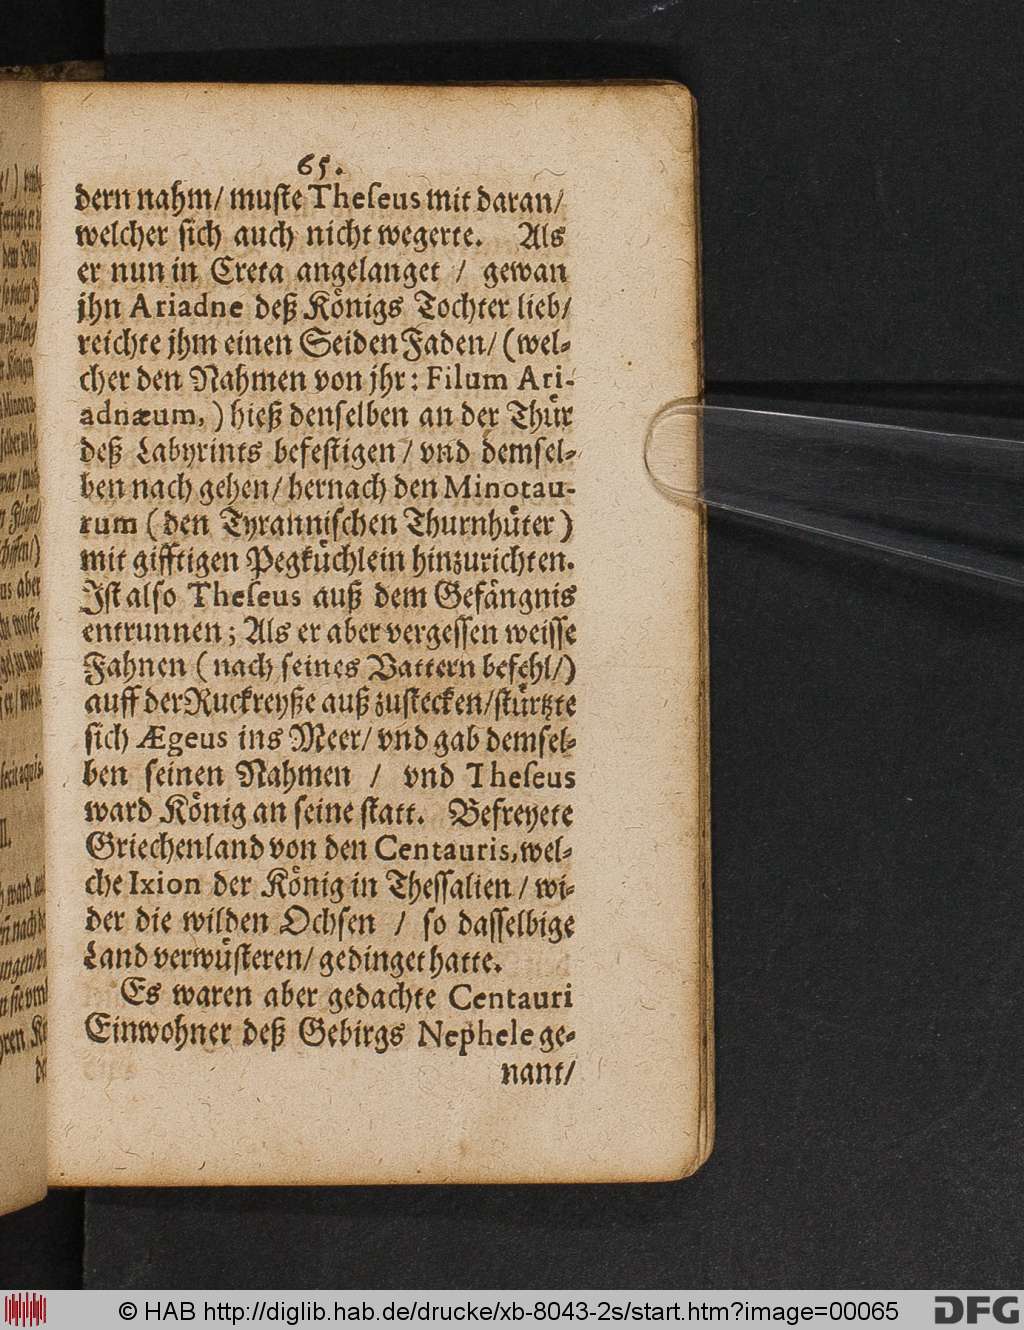 65.
dern nahm/ muſte Theſeus mit daran/
welcher ſich auch nicht wegerte. Als
er nun in Creta angelanget / gewan
jhn Ariadne deß Königs Tochter lieb/
reichte jhm einen Seiden Faden/ (wel-
cher den Nahmen von jhr: Filum Ari-
adnæum,) hieß denſelben an der Thür
deß Labyrints befeſtigen/ vnd demſel-
ben nach gehen/ hernach den Minotau-
rum (den Tyranniſchen Thurnhüter)
mit gifftigen Pegküchlein hinzurichten.
Iſt alſo Theſeus auß dem Gefängnis
entrunnen; Als er aber vergeſſen weiſſe
Fahnen (nach ſeines Vattern befehl/)
auff der Ruckreyße auß zuſtecken/ ſtürtzte
ſich Ægeus ins Meer/ vnd gab demſel-
ben ſeinen Nahmen / vnd Theſeus
ward König an ſeine ſtatt. Befreyete
Griechenland von den Centauris, wel-
che Ixion der König in Theſſalien / wi-
der die wilden Ochſen / ſo daſſelbige
Land verwüſteten/ gedinget hatte.
Es waren aber gedachte Centauri
Einwohner deß Gebirgs Nephele ge-
nant/
© HAB http://diglib.hab.de/drucke/xb-8043-2s/start.htm?image=00065
DFG